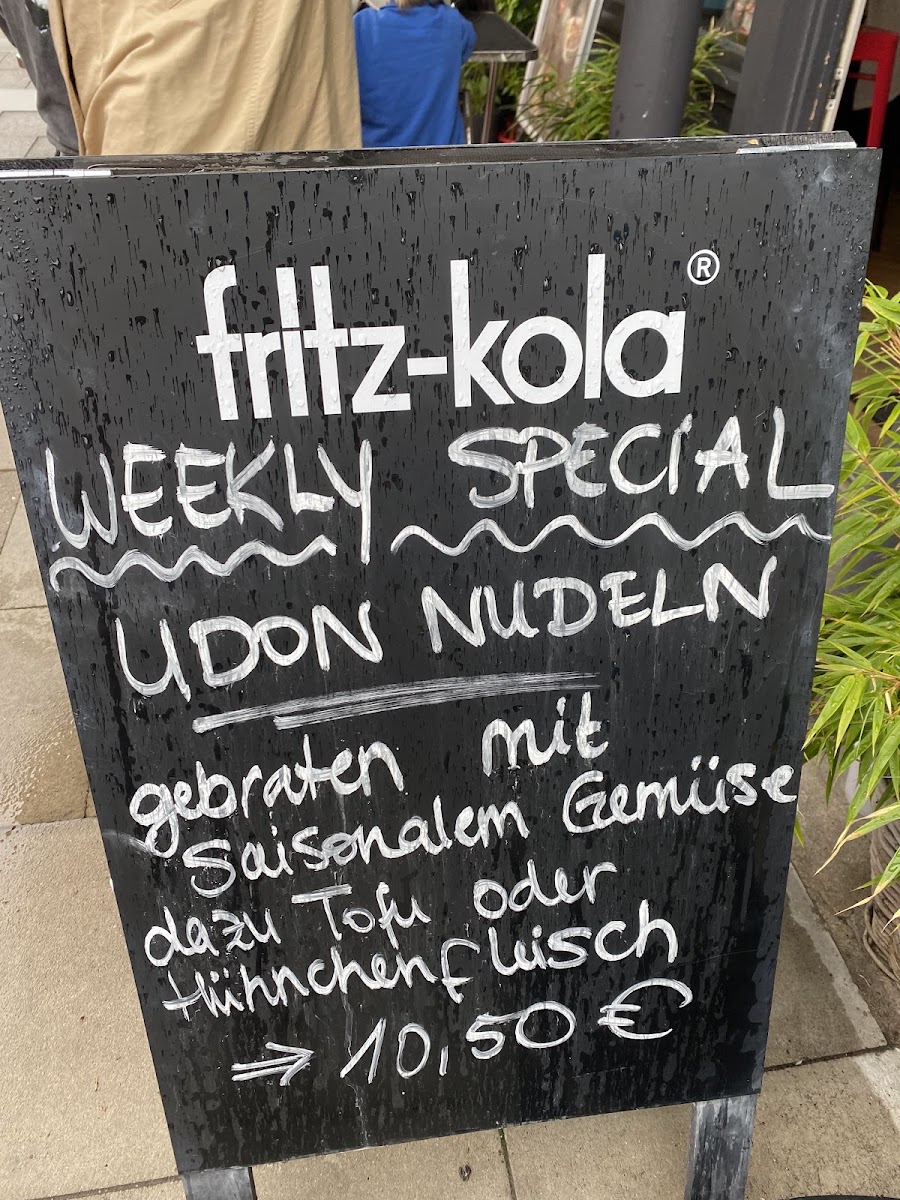 fritz-kola®
WEEKLY SPECIAL
UDON NUDELN
gebraten mit
saisonalem Gemüse
dazu Tofu oder
Hühnchenfleisch
⇒ 10,50 €